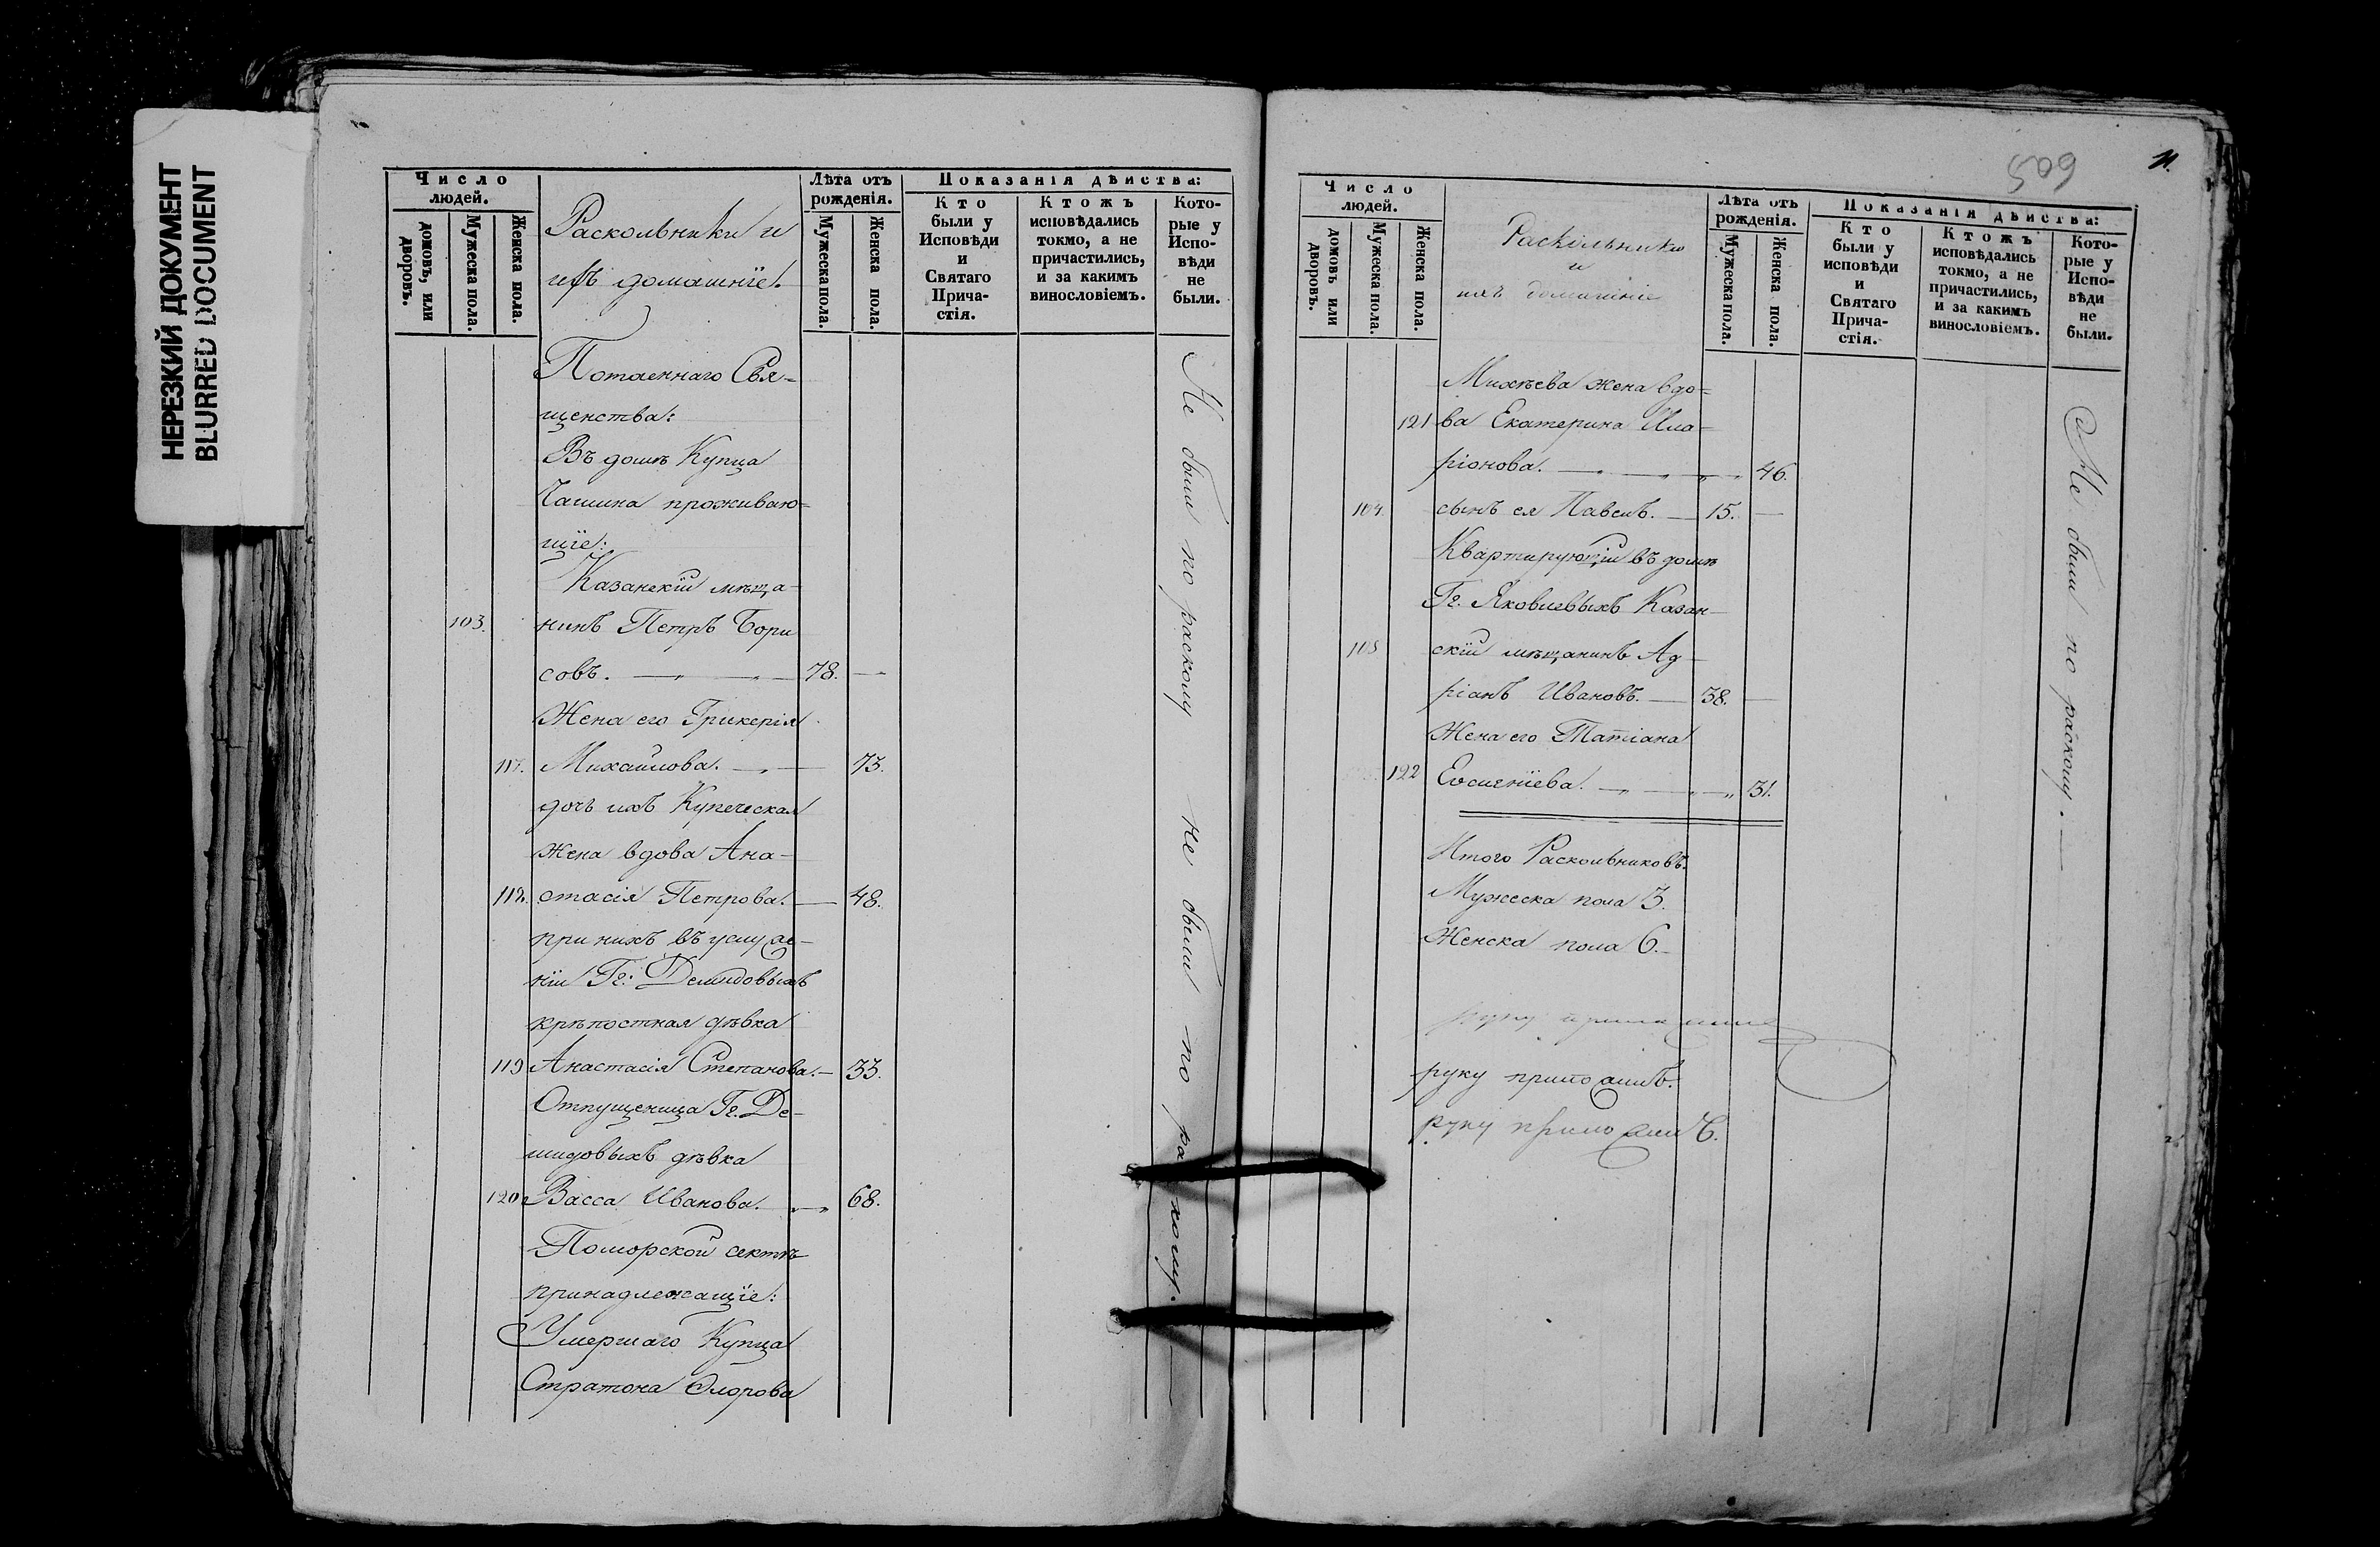 НЕРЕЗКИЙ ДОКУМЕНТ
BLURRED DOCUMENT
Число людей.
домовъ, или дворовъ.
Мужеска пола.
Женска пола.
Раскольники и
ихъ домашнїе.
Лѣта отъ рожденія.
Мужеска пола.
Женска пола.
Показанія дѣйства:
Кто были у Исповѣди и Святаго Прича-стія.
Ктожъ исповѣдались токмо, а не причастились, и за какимъ винословіемъ.
Кото-рые у Испо-вѣди не были.
Потаеннаго Свя-
щенства:
Въ домѣ Купца
Чашина проживаю-
щїе:
Казанскїй мѣща-
103. нинъ Петръ Бори
совъ. 78.
Жена его Гликерія
117. Михайлова. 73.
дочь ихъ Купеческая
жена вдова Ана-
118. стасія Петрова. 48.
при нихъ въ услуже-
нїи Гг. Демидовыхъ
крѣпостная дѣвка
119 Анастасія Степанова. 33.
Отпущеница Гг. Де-
мидовыхъ дѣвка
120 Васса Иванова. 68.
Поморской сектѣ
принадлежащїе:
Умершаго Купца
Стратона Флорова
Не были по расколу
Не были по расколу.
605
11.
Число людей.
домовъ или дворовъ.
Мужеска пола.
Женска пола.
Раскольники
и
ихъ домашніе
Лѣта отъ рожденія.
Мужеска пола.
Женска пола.
Показанія дѣйства:
Кто были у исповѣди и Святаго Прича-стія.
Ктожъ исповѣдались токмо, а не причастились, и за какимъ винословіемъ.
Кото-рые у Испо-вѣди не были.
Михѣева жена вдо-
121 ва Екатерина Ила-
ріонова. 46.
104. сынъ ея Павелъ. 15.
Квартирующїи въ домѣ
Гг. Яковлевыхъ Казан-
105 скїй мѣщанинъ Ад-
ріанъ Ивановъ. 38.
Жена его Татіана
122 Евсигнїева. 31.
Итого Раскольниковъ.
Мужеска пола 3.
Женска пола 6.
руку приложилъ
руку приложилъ.
руку приложилъ.
Не были по расколу.